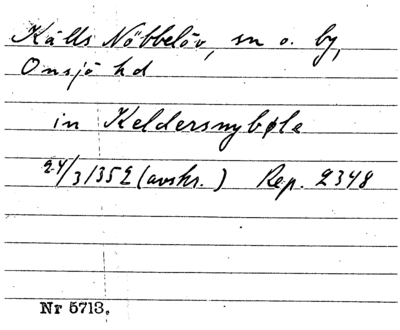 Källs Nöbbelöv, sn o. by,
Onsjö hd
in Keldersnybøle
24/3 1352 (avskr.) Rep. 2348
Nr 5713.